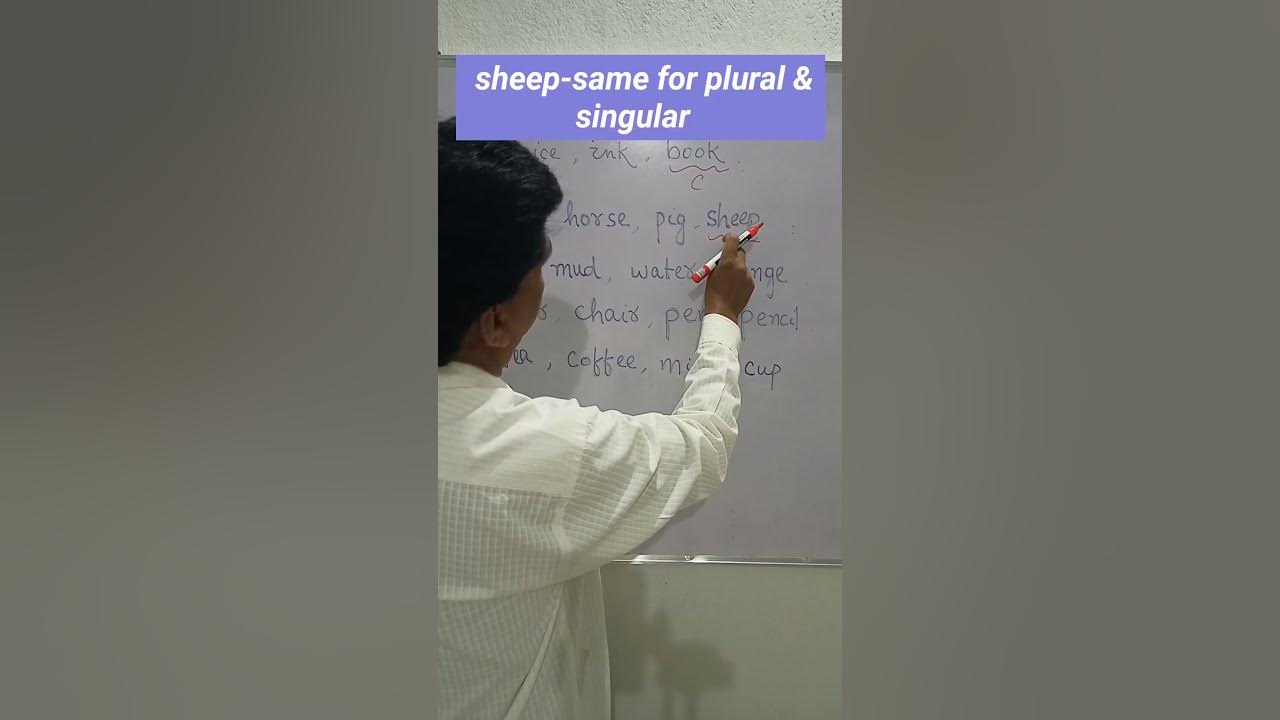 sheep-same for plural &
singular
ink, book.
C
horse, pig, sheep.
mud, water,
chair, pen, pencil
coffee, cup